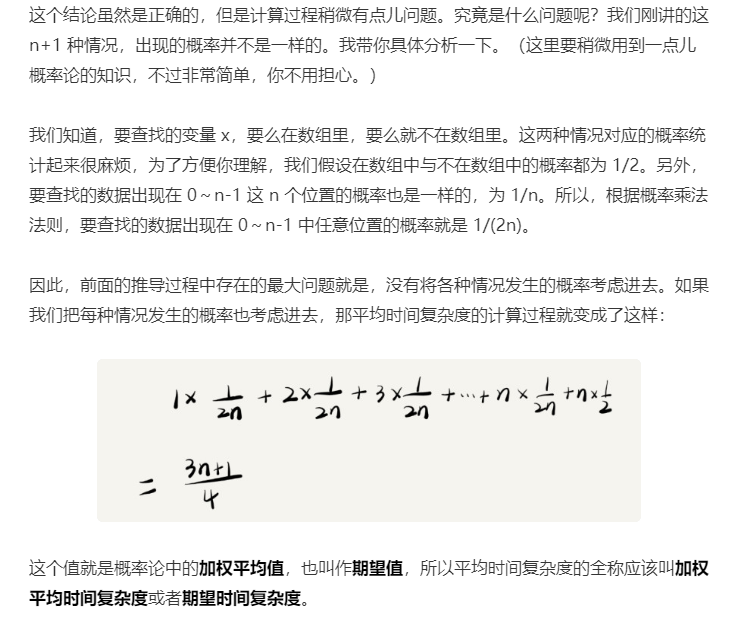 这个结论虽然是正确的，但是计算过程稍微有点儿问题。究竟是什么问题呢？我们刚讲的这
n+1 种情况，出现的概率并不是一样的。我带你具体分析一下。（这里要稍微用到一点儿
概率论的知识，不过非常简单，你不用担心。）
我们知道，要查找的变量 x，要么在数组里，要么就不在数组里。这两种情况对应的概率统
计起来很麻烦，为了方便你理解，我们假设在数组中与不在数组中的概率都为 1/2。另外，
要查找的数据出现在 0～n-1 这 n 个位置的概率也是一样的，为 1/n。所以，根据概率乘法
法则，要查找的数据出现在 0～n-1 中任意位置的概率就是 1/(2n)。
因此，前面的推导过程中存在的最大问题就是，没有将各种情况发生的概率考虑进去。如果
我们把每种情况发生的概率也考虑进去，那平均时间复杂度的计算过程就变成了这样：
1× 1/2n + 2× 1/2n + 3× 1/2n + ⋯ + n× 1/2n + n× 1/2
= 3n+1/4
这个值就是概率论中的加权平均值，也叫作期望值，所以平均时间复杂度的全称应该叫加权
平均时间复杂度或者期望时间复杂度。